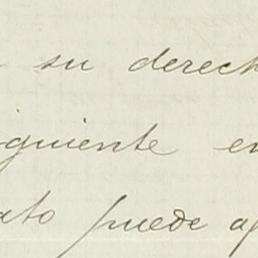 su derech
iguiente en
ato puede a